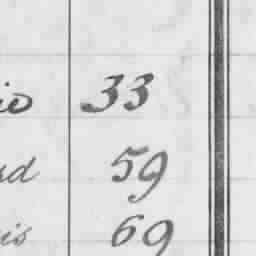 io 33
rd 59
is 69